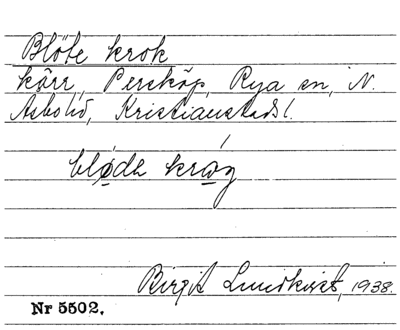 Blöte krok
kärr, Persköp, Rya sn, N.
Åsbo hd, Kristianstads l.
bløda krǫg
Birgit Lundkvist, 1938.
Nr 5502.